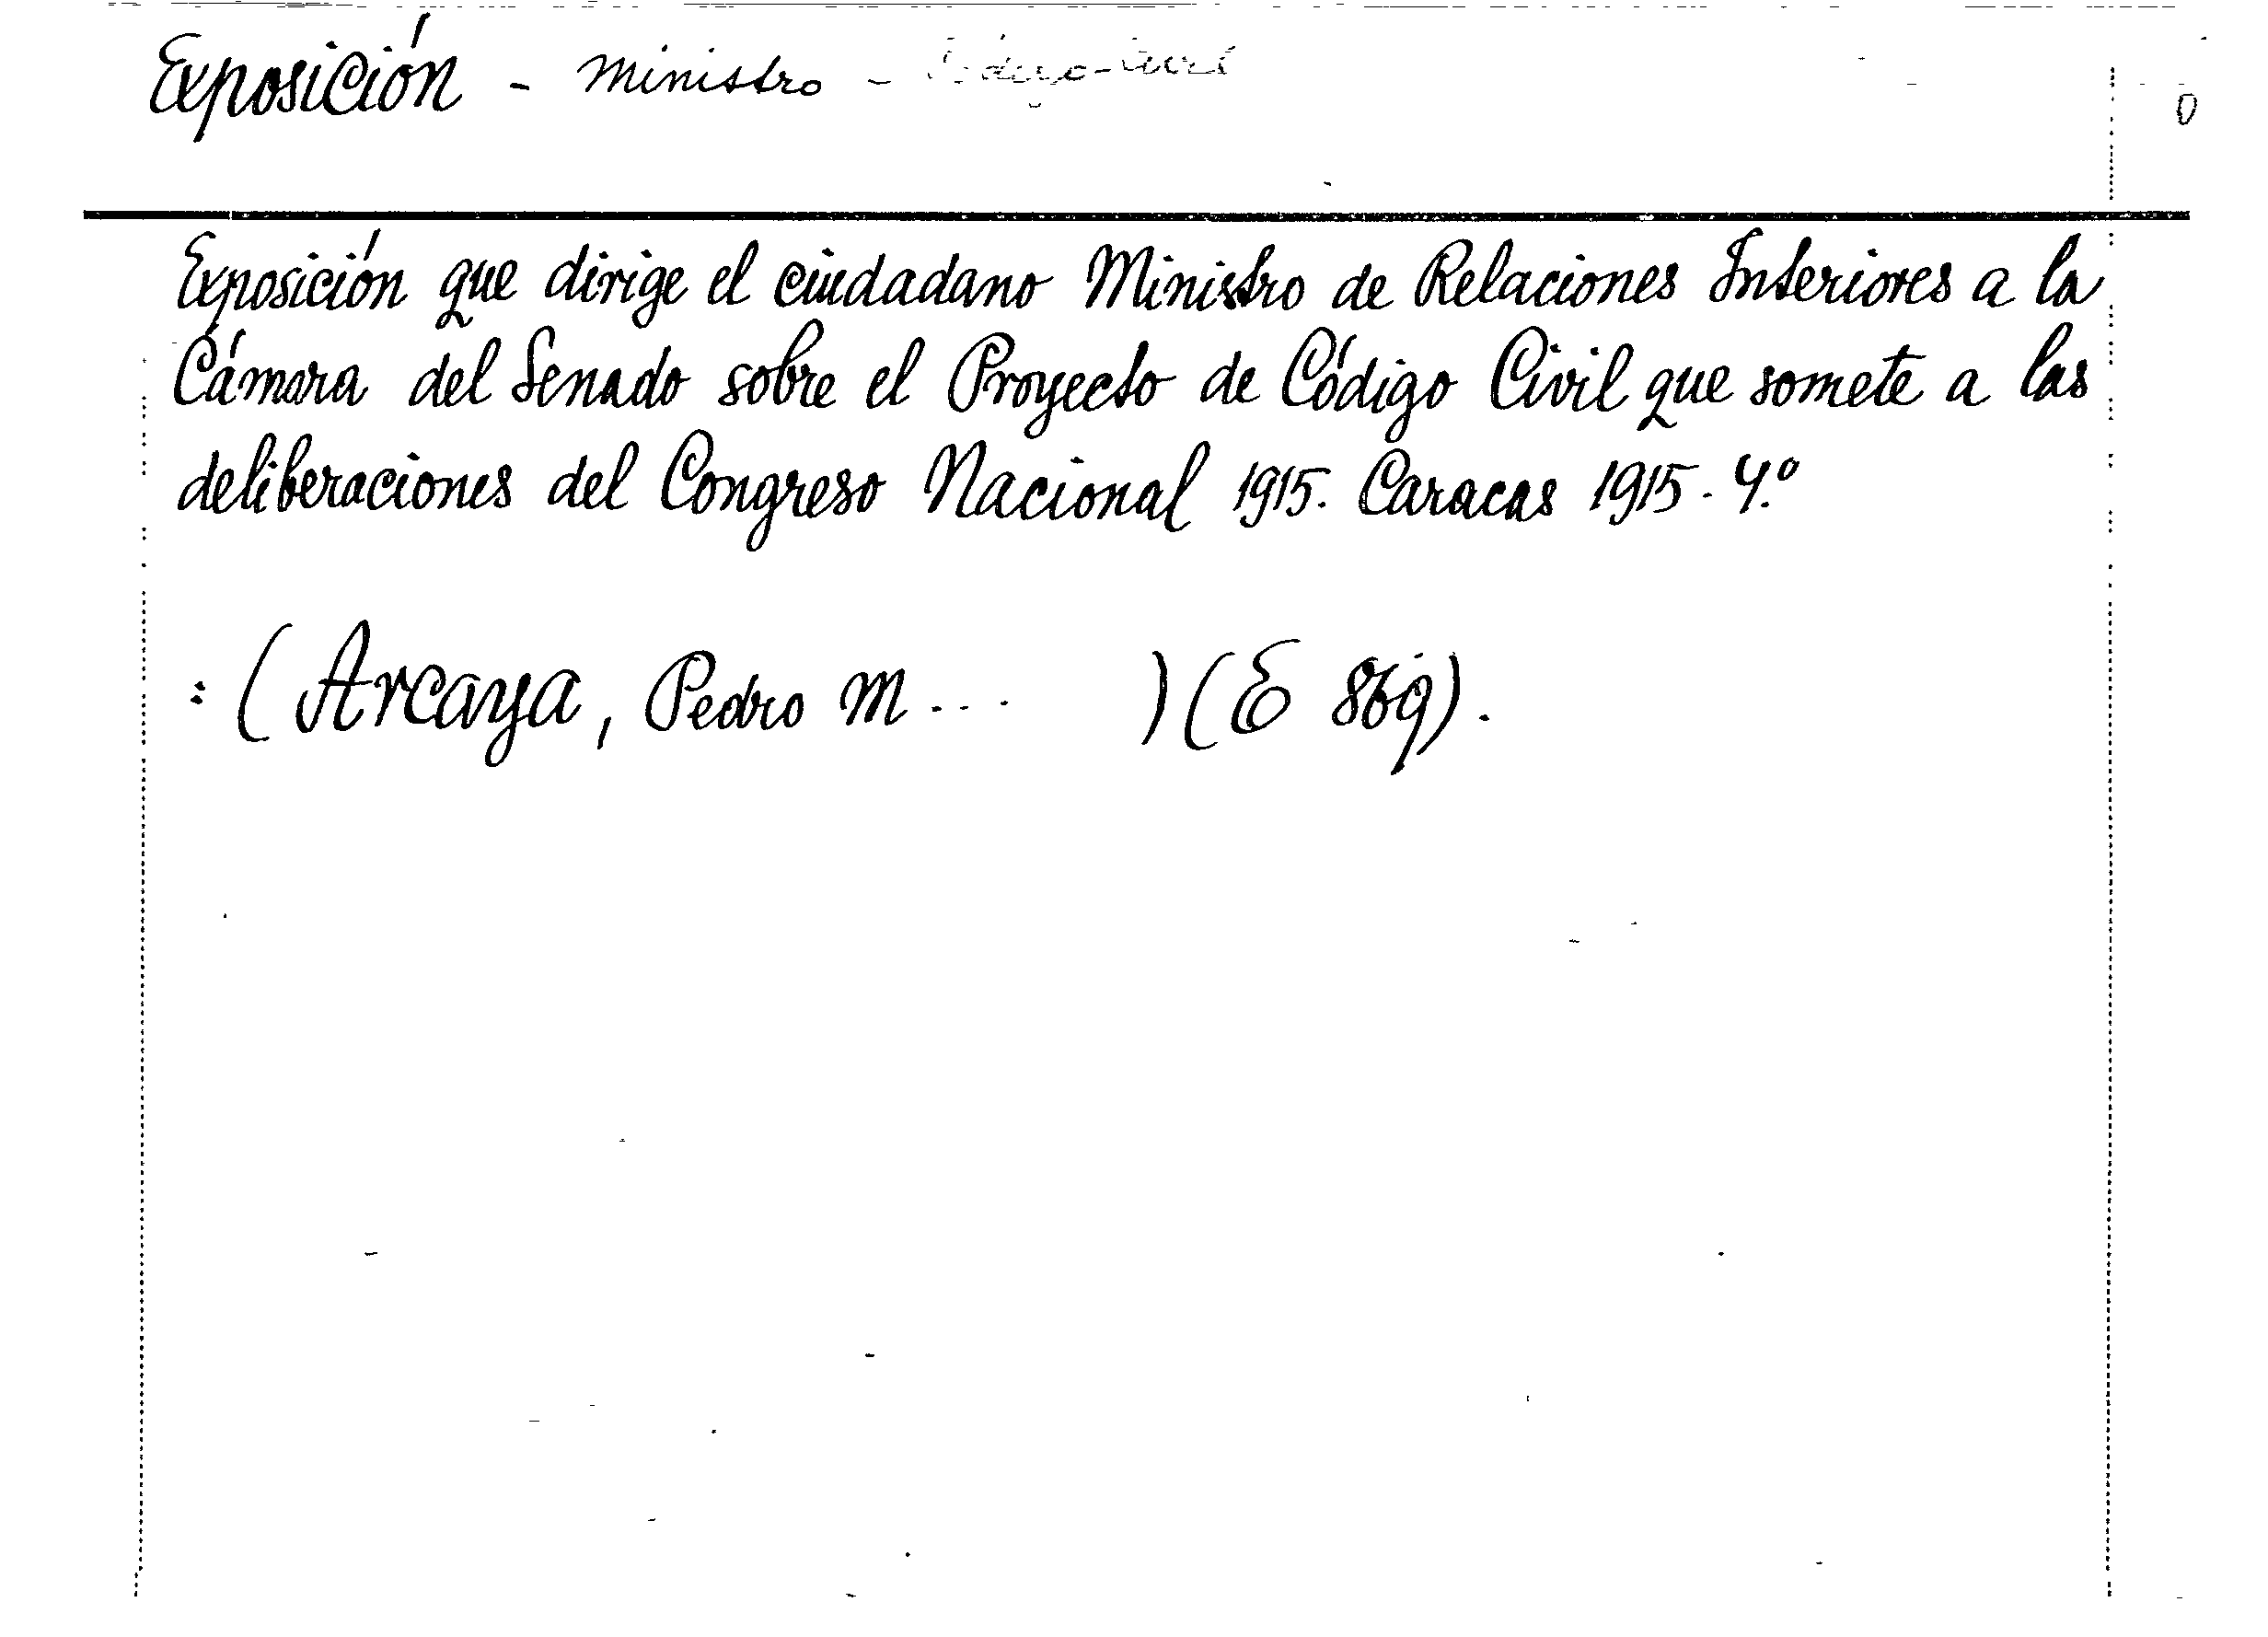 Exposición - Ministro - Código-Civil
Exposición que dirige el ciudadano Ministro de Relaciones Interiores a la
Cámara del Senado sobre el Proyecto de Código Civil que somete a las
deliberaciones del Congreso Nacional 1915. Caracas 1915. 4.º
: (Arcaya, Pedro M... ) (E 869).